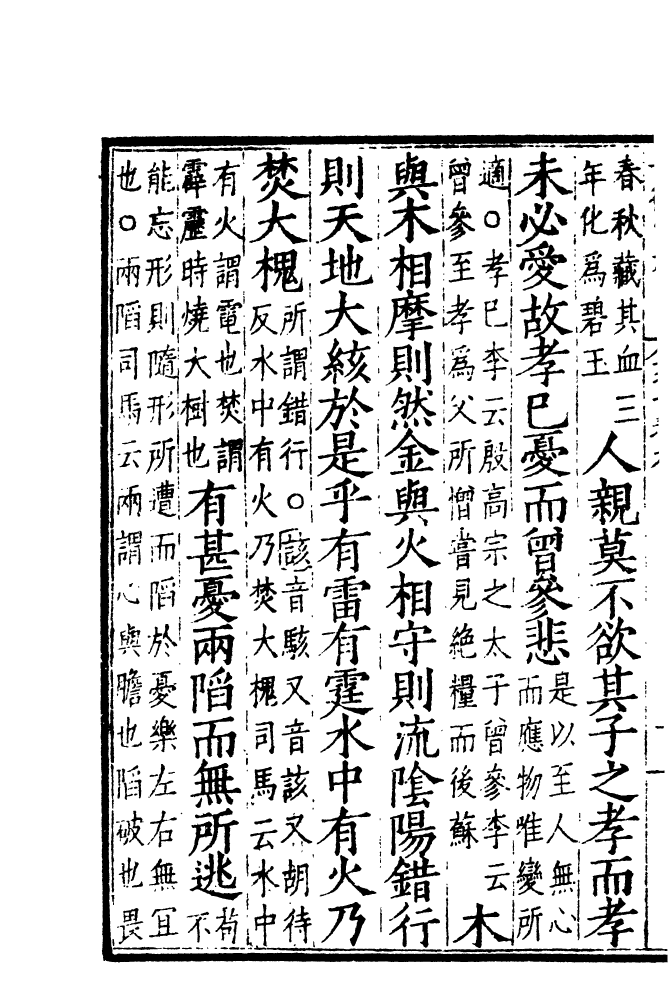 春秋藏其血三
年化爲碧玉
人親莫不欲其子之孝而孝
未必愛故孝巳憂而曾參悲
是以至人無心
而應物唯變所
適○孝巳李云殷高宗之太子曾參李云
曾參至孝爲父所憎嘗見絶糧而後蘇
木
與木相摩則然金與火相守則流陰陽錯行
則天地大絯於是乎有雷有霆水中有火乃
焚大槐
所謂錯行○該音駭又音該又胡待
反水中有火乃焚大槐司馬云水中
有火謂電也焚謂
霹靂時燒大樹也
有甚憂兩陷而無所逃
苟
不
能忘形則隨形所遭而陷於憂樂左右無宜
也○兩陷司馬云兩謂心與膽也陷破也畏